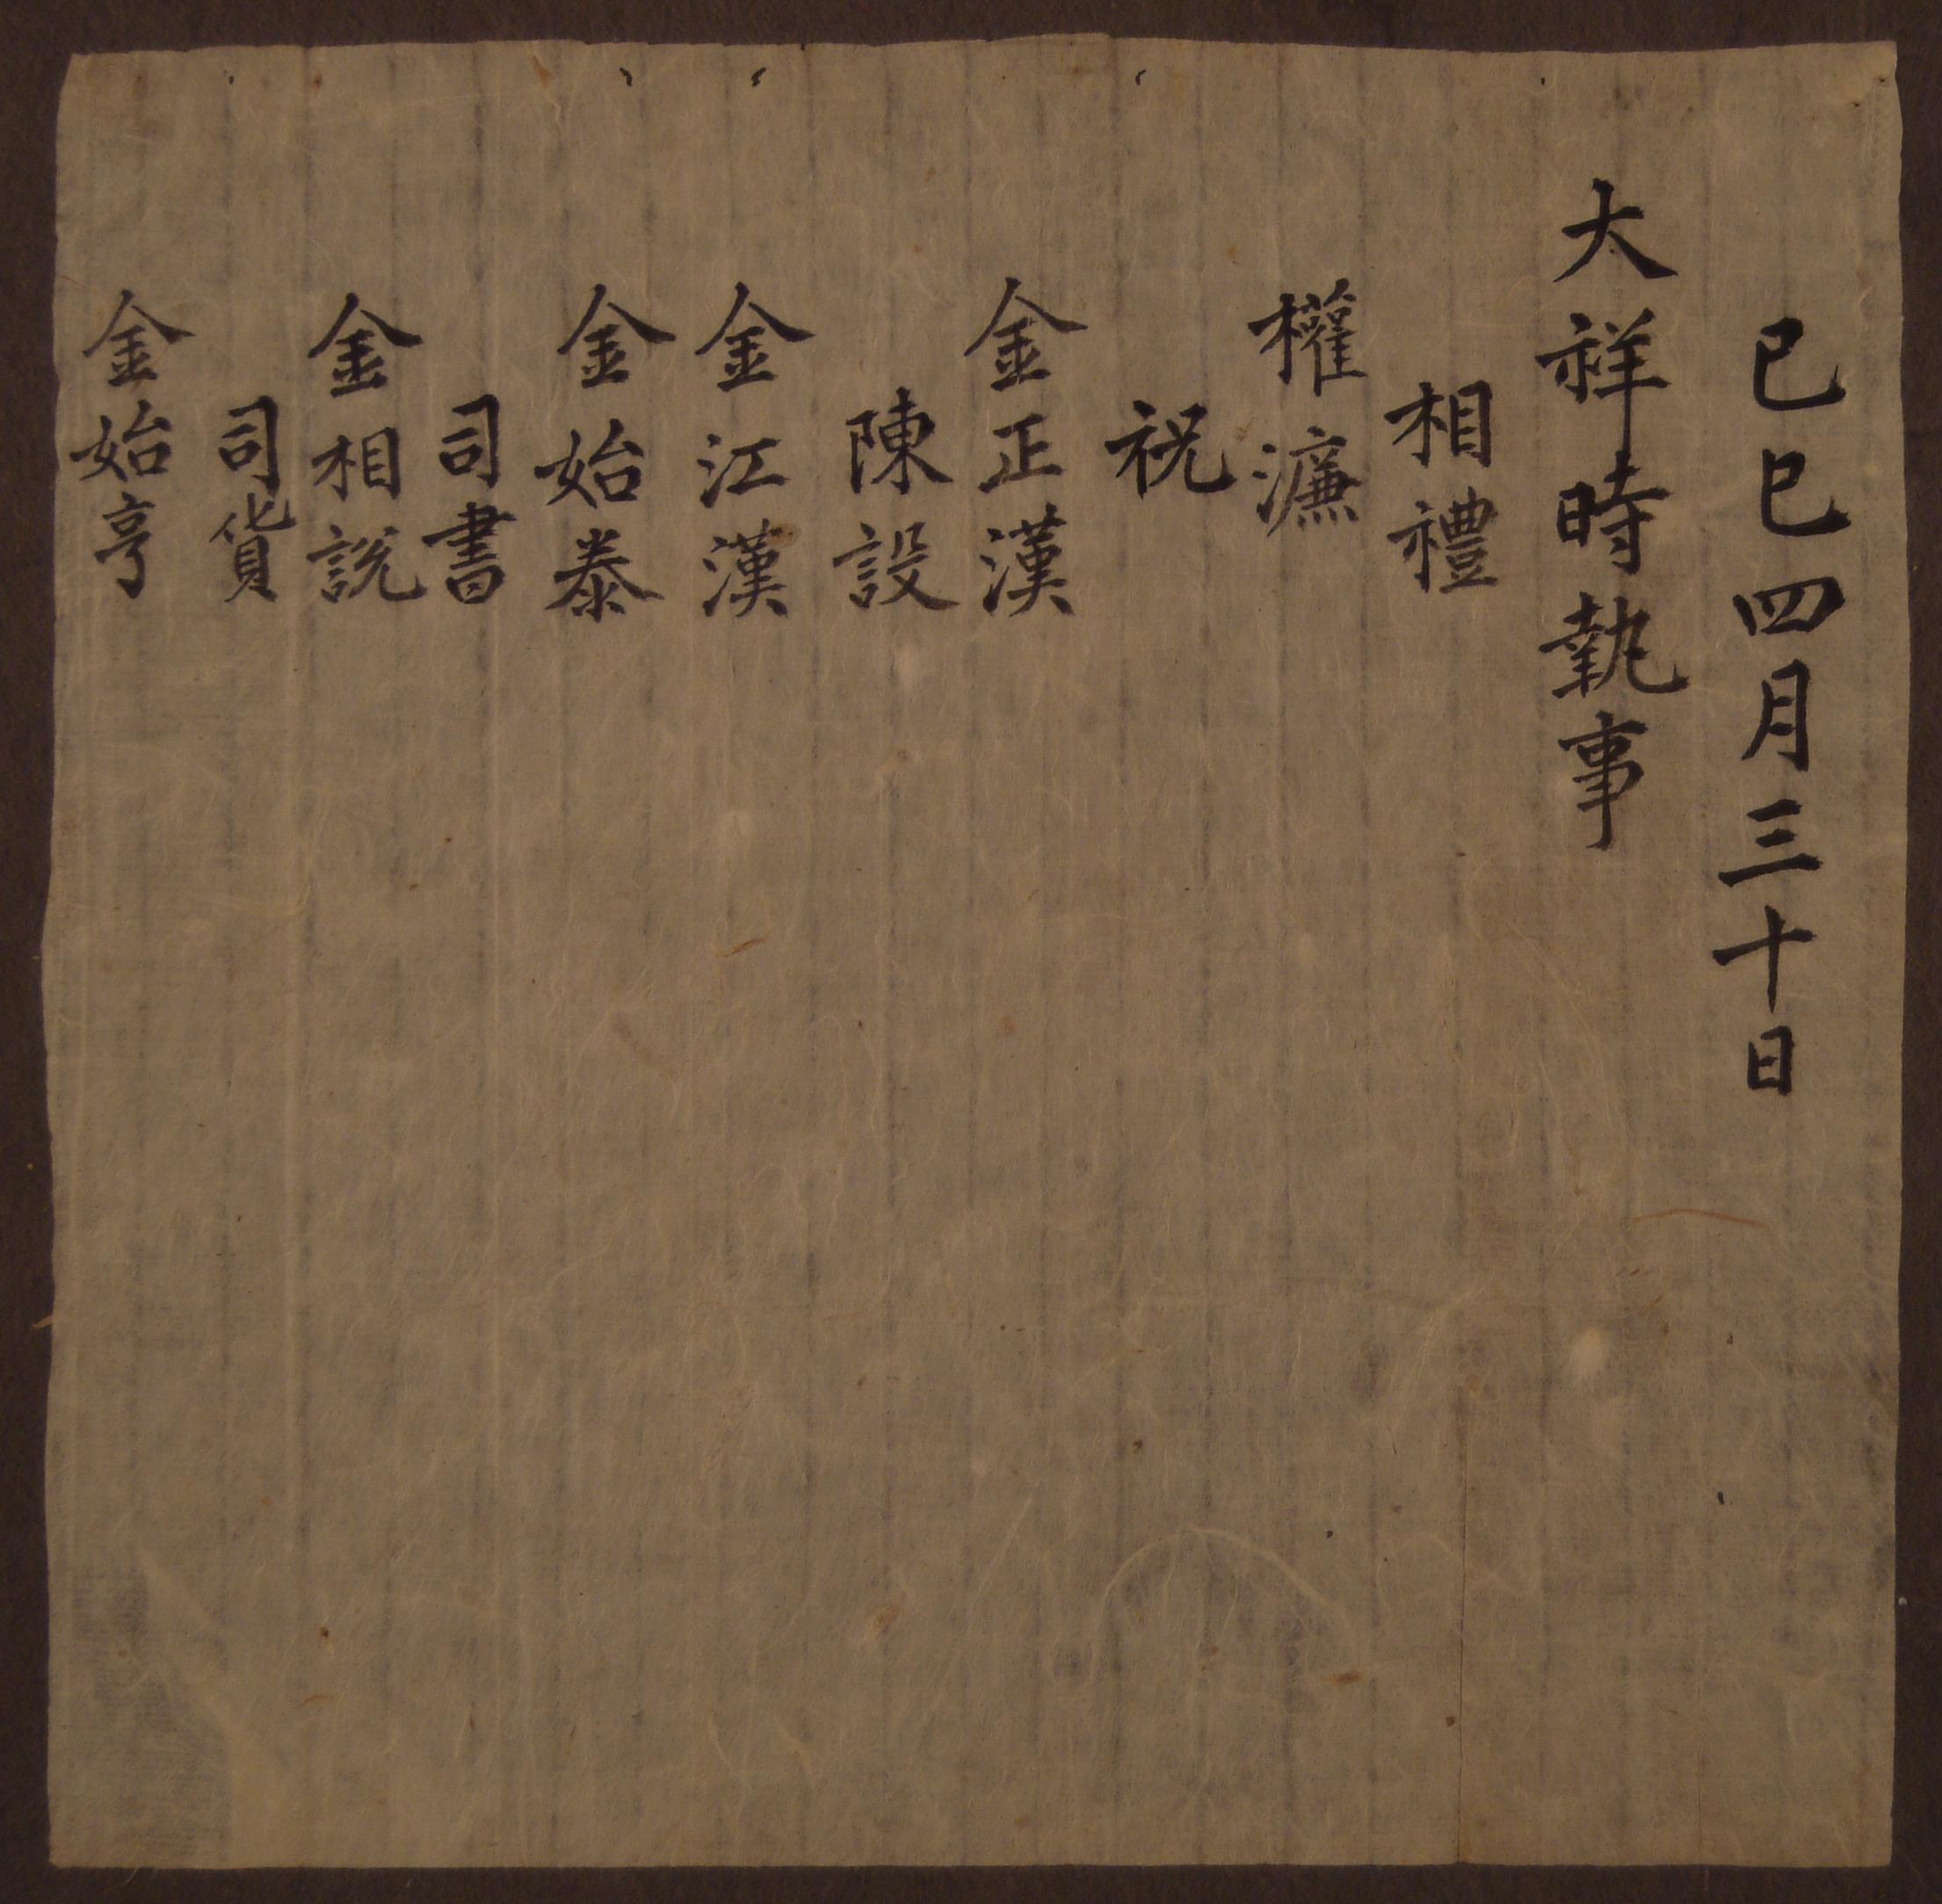 己巳四月三十日
大祥時執事
相禮
權濂
祝
金正漢
陳設
金江漢
金始泰
司書
金相說
司貨
金始亨